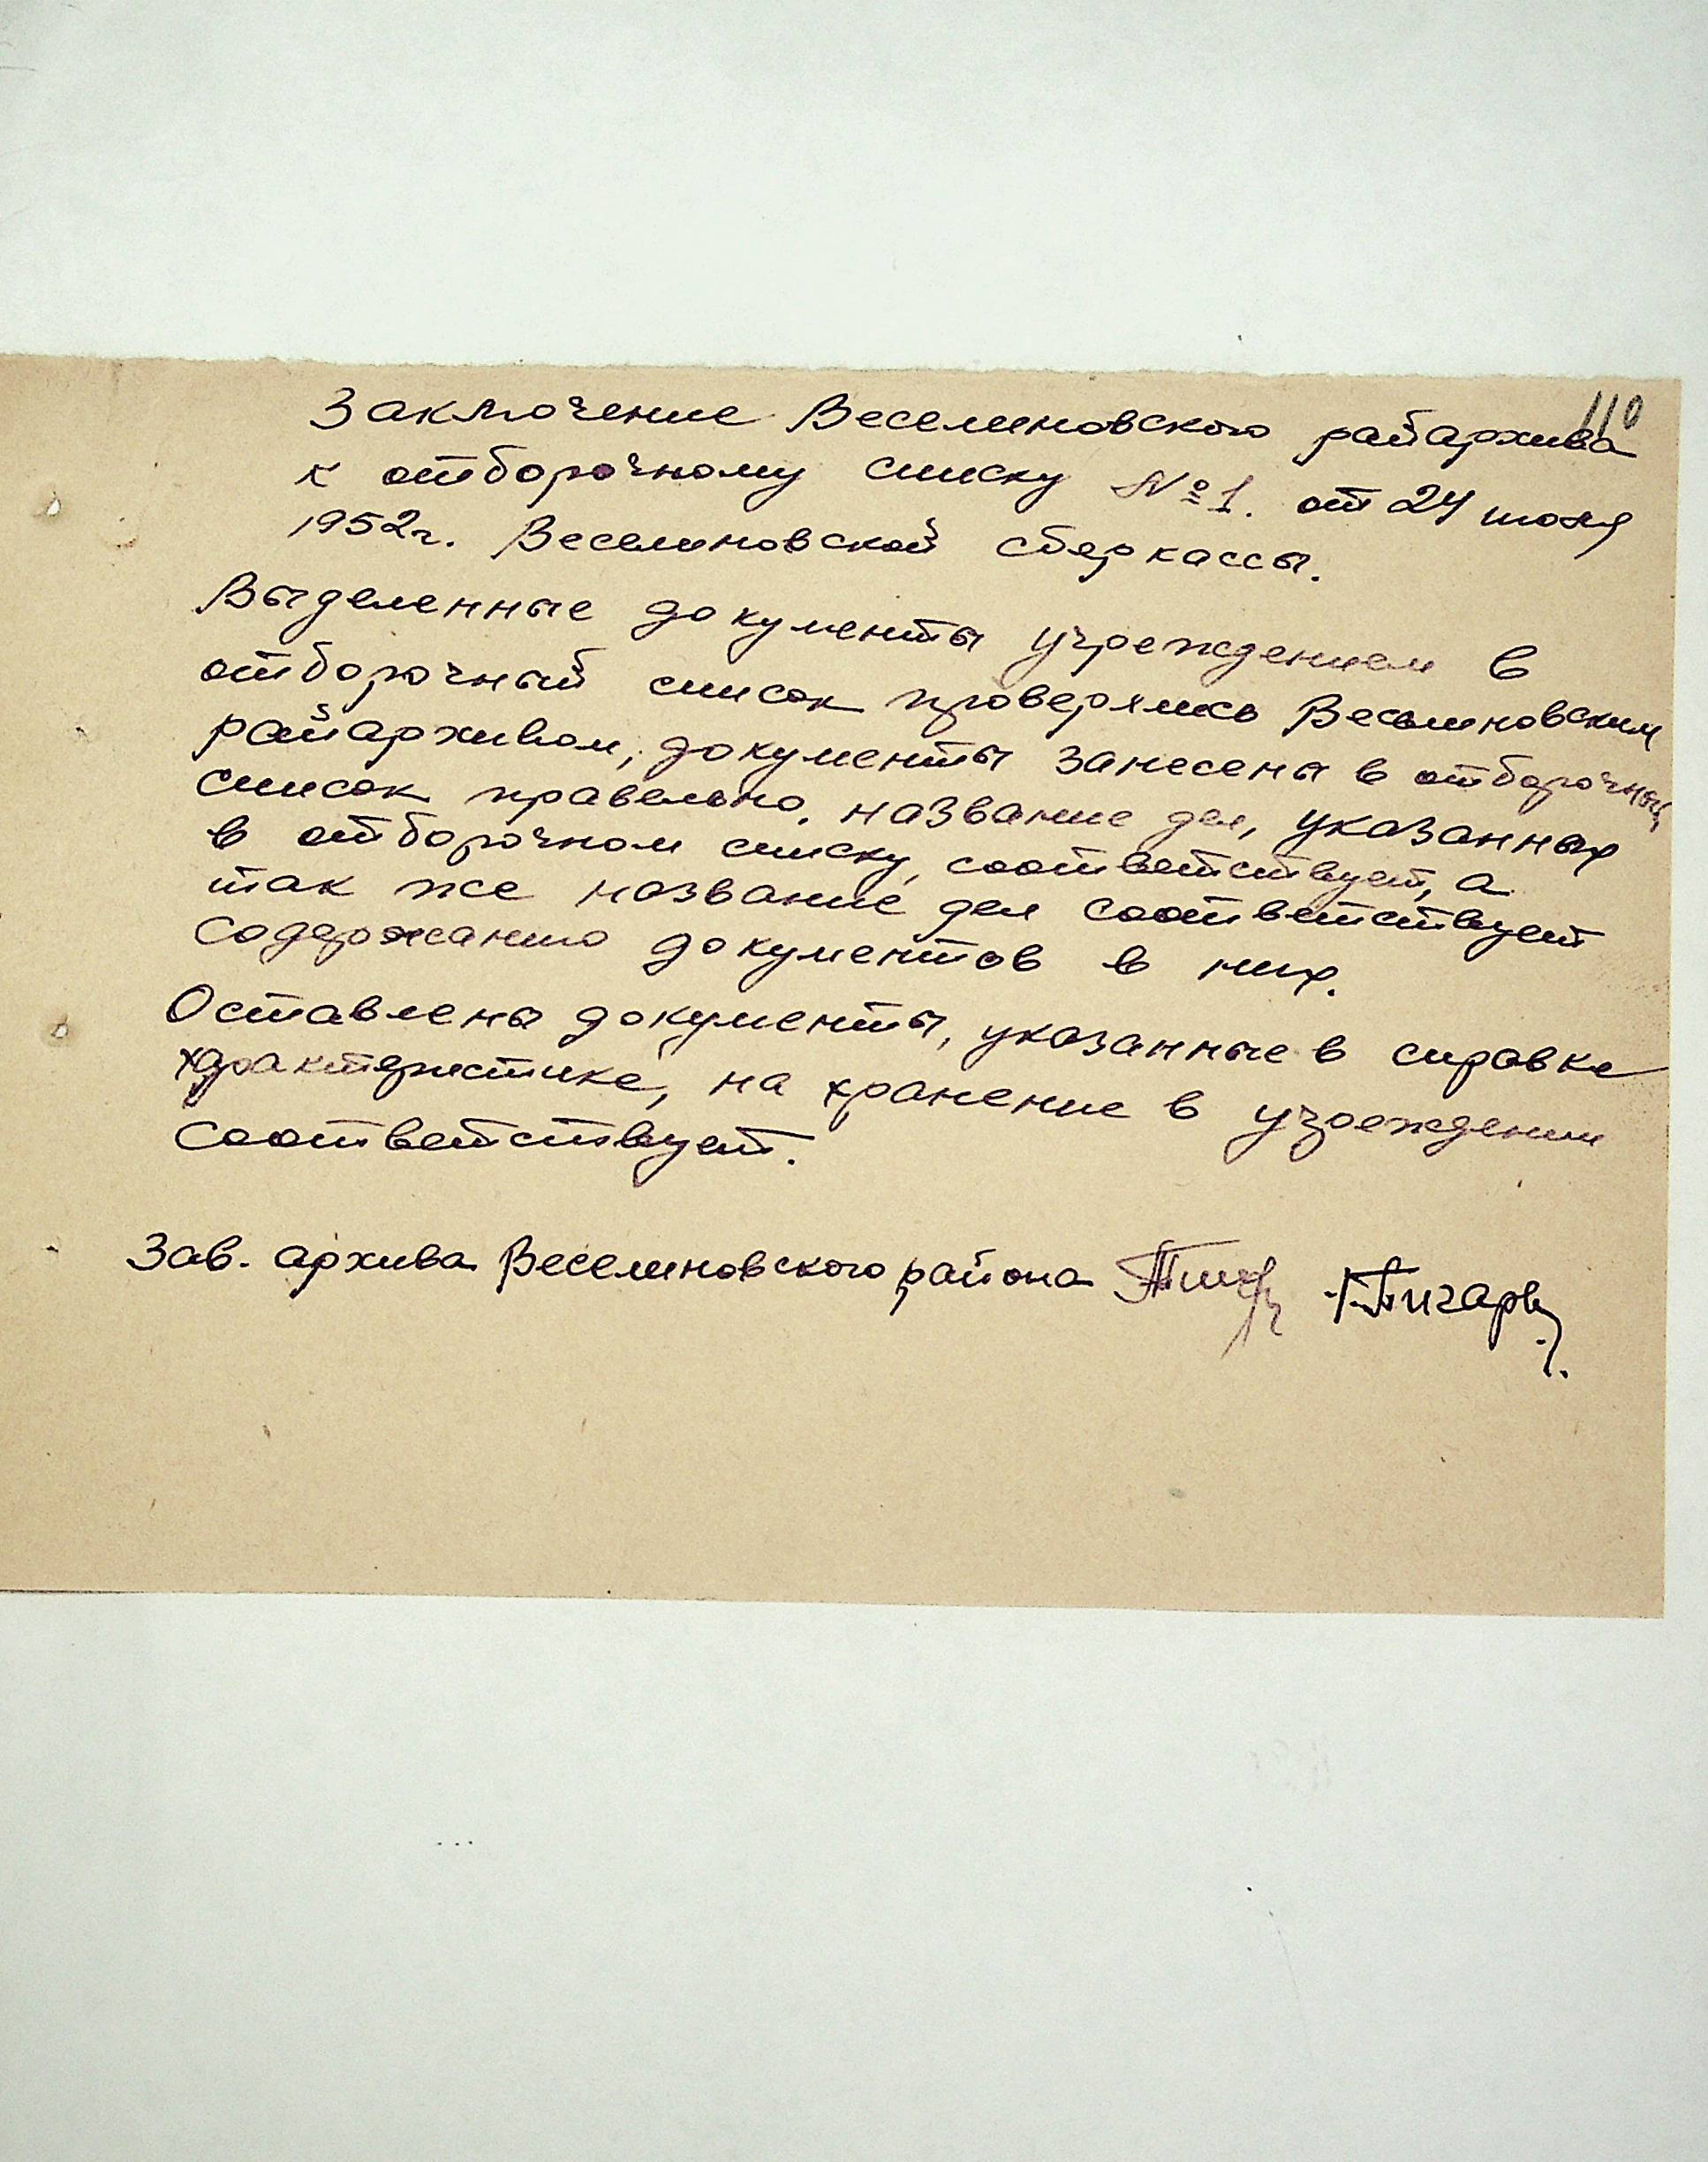 110
Заключение Веселиновского райархива
к отборочному списку №1. от 24 июля
1952г. Веселиновской сберкассы.
Выделенные документы учреждением в
отборочный список проверялись Веселиновским
райархивом, документы занесены в отборочный
список правельно. название дел, указанных
в отборочном списку, соответствует, а
так же название дел соответствует
содержанию документов в них.
Оставлены документы, указанные в справке
характеристике, на хранение в учреждении
соответствует.
Зав. архива Веселиновского района